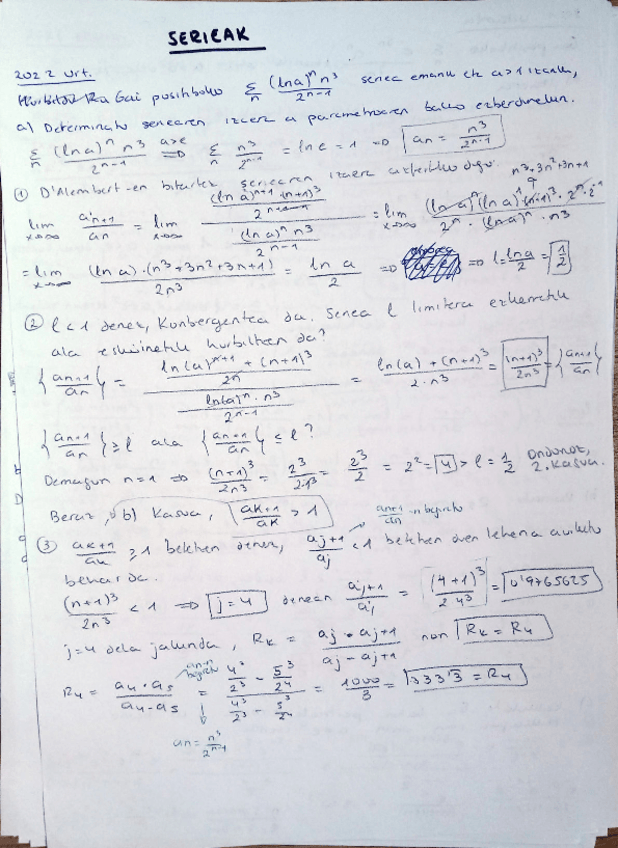 SERIEAK
2022 urt.
Gai positiboko Σ_n (ln a)^n n^3 / 2^(n-1) seriea emanik eta a>1 izanik,
a) Determinatu seriearen izaera a parametroaren balio ezberdinetan.
Σ_n (ln a)^n n^3 / 2^(n-1) a=e => Σ_n n^3 / 2^(n-1) = ln e = 1 => an = n^3 / 2^(n-1)
① D'Alembert-en bitartez seriearen izaera aztertuko dugu. n^3+3n^2+3n+1
lim x→∞ an+1 / an = lim x→∞ ((ln a)^(n+1) (n+1)^3 / 2^(n+1-1)) / ((ln a)^n n^3 / 2^(n-1)) = lim x→∞ (ln a)^n (ln a)^1 (n+1)^3 · 2^n · 2^-1 / 2^n · (ln a)^n · n^3
= lim x→∞ (ln a) · (n^3+3n^2+3n+1) / 2n^3 = ln a / 2 => => l = ln a / 2 = 1/2
② l<1 denez, Konbergentea da. Seriea l limitera ezkerretik
ala eskuinetik hurbiltzen da?
{an+1 / an} = (ln (a)^(n+1) + (n+1)^3 / 2^n) / (ln(a)^n · n^3 / 2^(n-1)) = ln(a) + (n+1)^3 / 2 · n^3 = (n+1)^3 / 2n^3 = {an+1 / an}
{an+1 / an} ≥ l ala {an+1 / an} ≤ l?
Demagun n=1 => (n+1)^3 / 2n^3 = 2^3 / 2·1^3 = 2^3 / 2 = 2^2 = 4 > l = 1/2 Ondorioz, 2. Kasua.
Beraz, b) Kasua, ak+1 / ak > 1
an+1 / an -n begiratu
③ ak+1 / ak ≥ 1 betetzen denez, aj+1 / aj < 1 betetzen duen lehena aurkitu
behar da.
(n+1)^3 / 2n^3 < 1 => j=4 denean aj+1 / aj = (4+1)^3 / 2 4^3 = 0'9765625
j=4 dela jakinda, Rk = aj · aj+1 / aj - aj+1 non Rk = R4
R4 = a4 · a5 / a4 - a5 = (4^3 / 2^3 - 5^3 / 2^4) / (4^3 / 2^3 - 5^3 / 2^4) = 1000 / 3 = 333'3 = R4
an = n^3 / 2^(n-1)